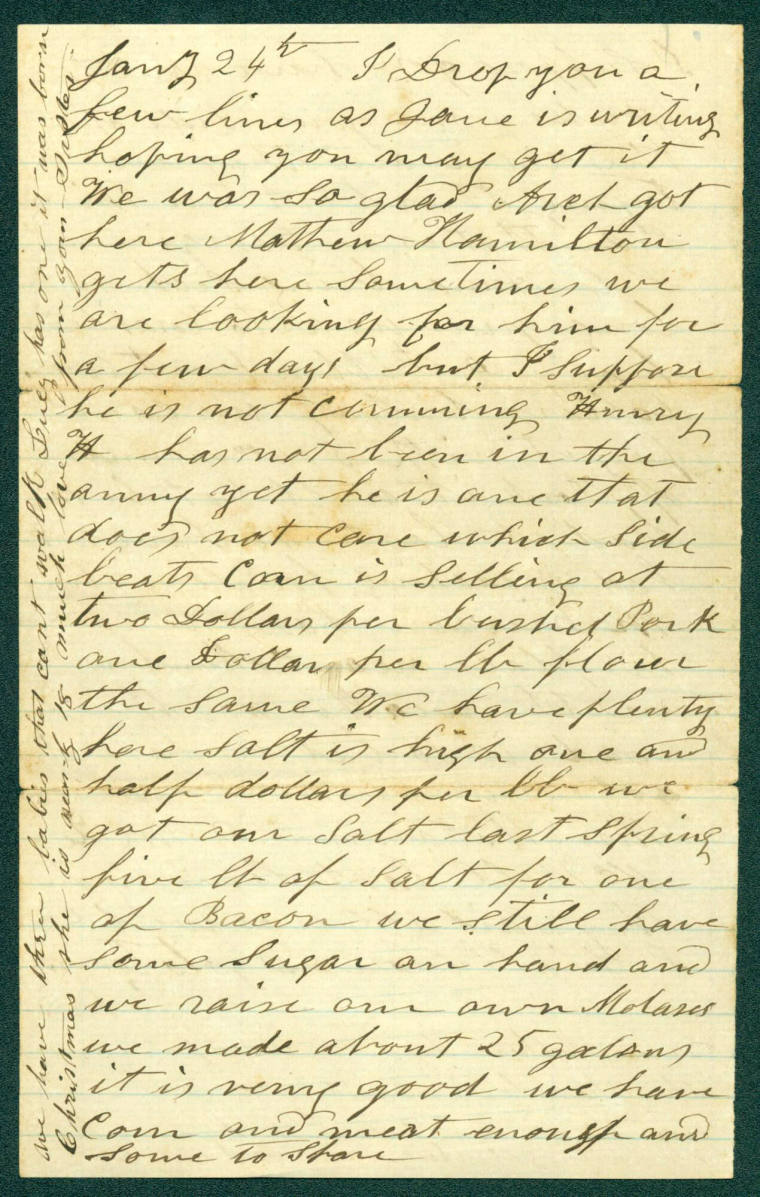 Jany 24th I Drop you a
few lines as Jane is writing
hoping you may get it
We was so glad Arch got
here Mathew Hamilton
gets here Sometimes we
are looking for him for
a few days but I Suppose
he is not comming Henry
H has not been in the
army yet he is one that
does not care which Side
beats Corn is Selling at
two Dollars per bushel Pork
one Dollar per lb flour
the same We have plenty
here Salt is high one and
half dollars per lb we
got our Salt last Spring
five lb of Salt for one
of Bacon we still have
some Sugar on hand and
we raise our own Molases
we made about 25 galons
it is very good we have
Corn and meat enough and
some to Spare
we have three babies that cant walk Lucy has one it was born
Christmas she is nearly 18 much love from your Sister